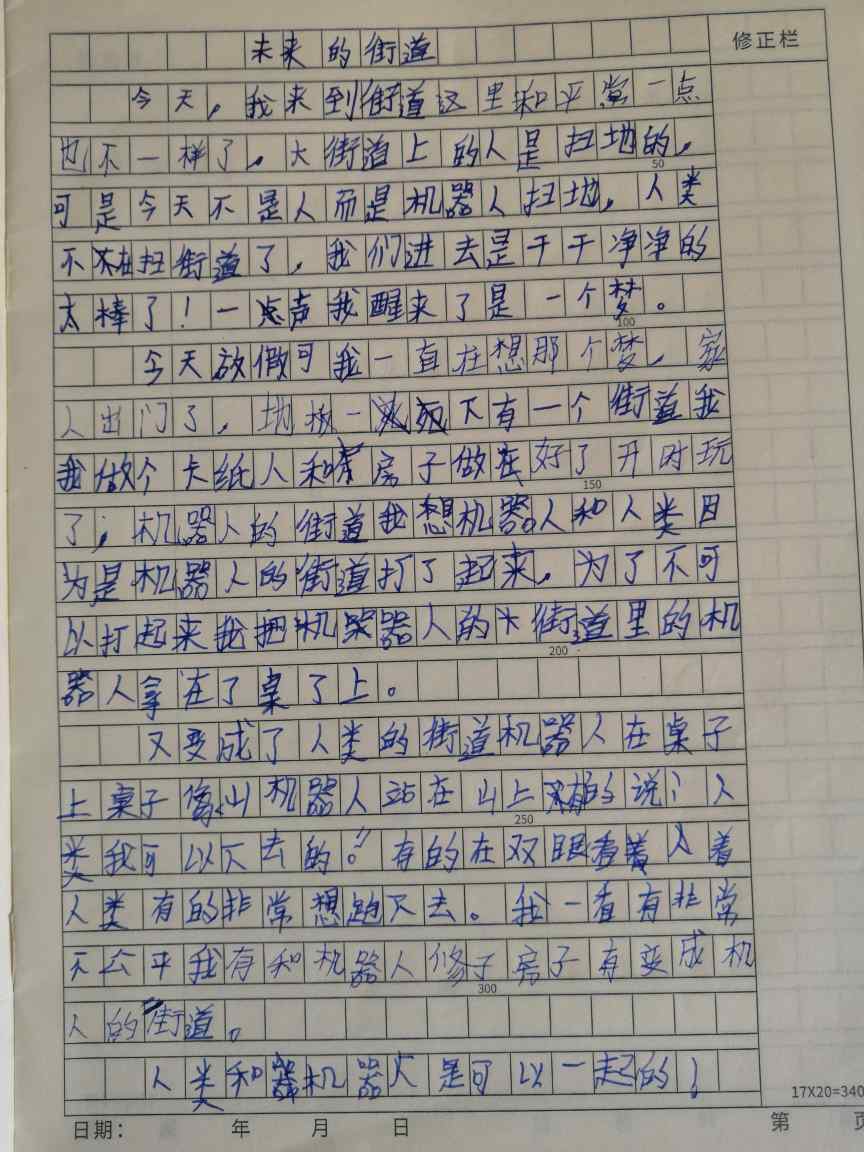 未来的街道
修正栏
今天，我来到街道这里和平常一点
也不一样了，大街道上的人是扫地的，
50
可是今天不是人而是机器人扫地，人类
不在扫街道了，我们进去是干干净净的
太棒了！一点声我醒来了是一个梦。
100
今天放假可我一直在想那个梦，家
人出门了，地板一下有一个街道我
我做个卡纸人和房子做在好了开时玩
150
了，机器人的街道我想机器人和人类目
为是机器人的街道打了起来，为了不可
以打起来我把机器人的大街道里的机
200
器人拿在了桌了上。
又变成了人类的街道机器人在桌子
上桌子像山机器人站在山上有的说：人
250
类我可以下去的！"有的在双眼看着人着
人类有的非常想跑下去。我一看有非常
不公平我有和机器人修了房子有变成机
300
人的街道。
人类和机器人是可以一起的！
17X20=340
日期： 年 月 日
第 页